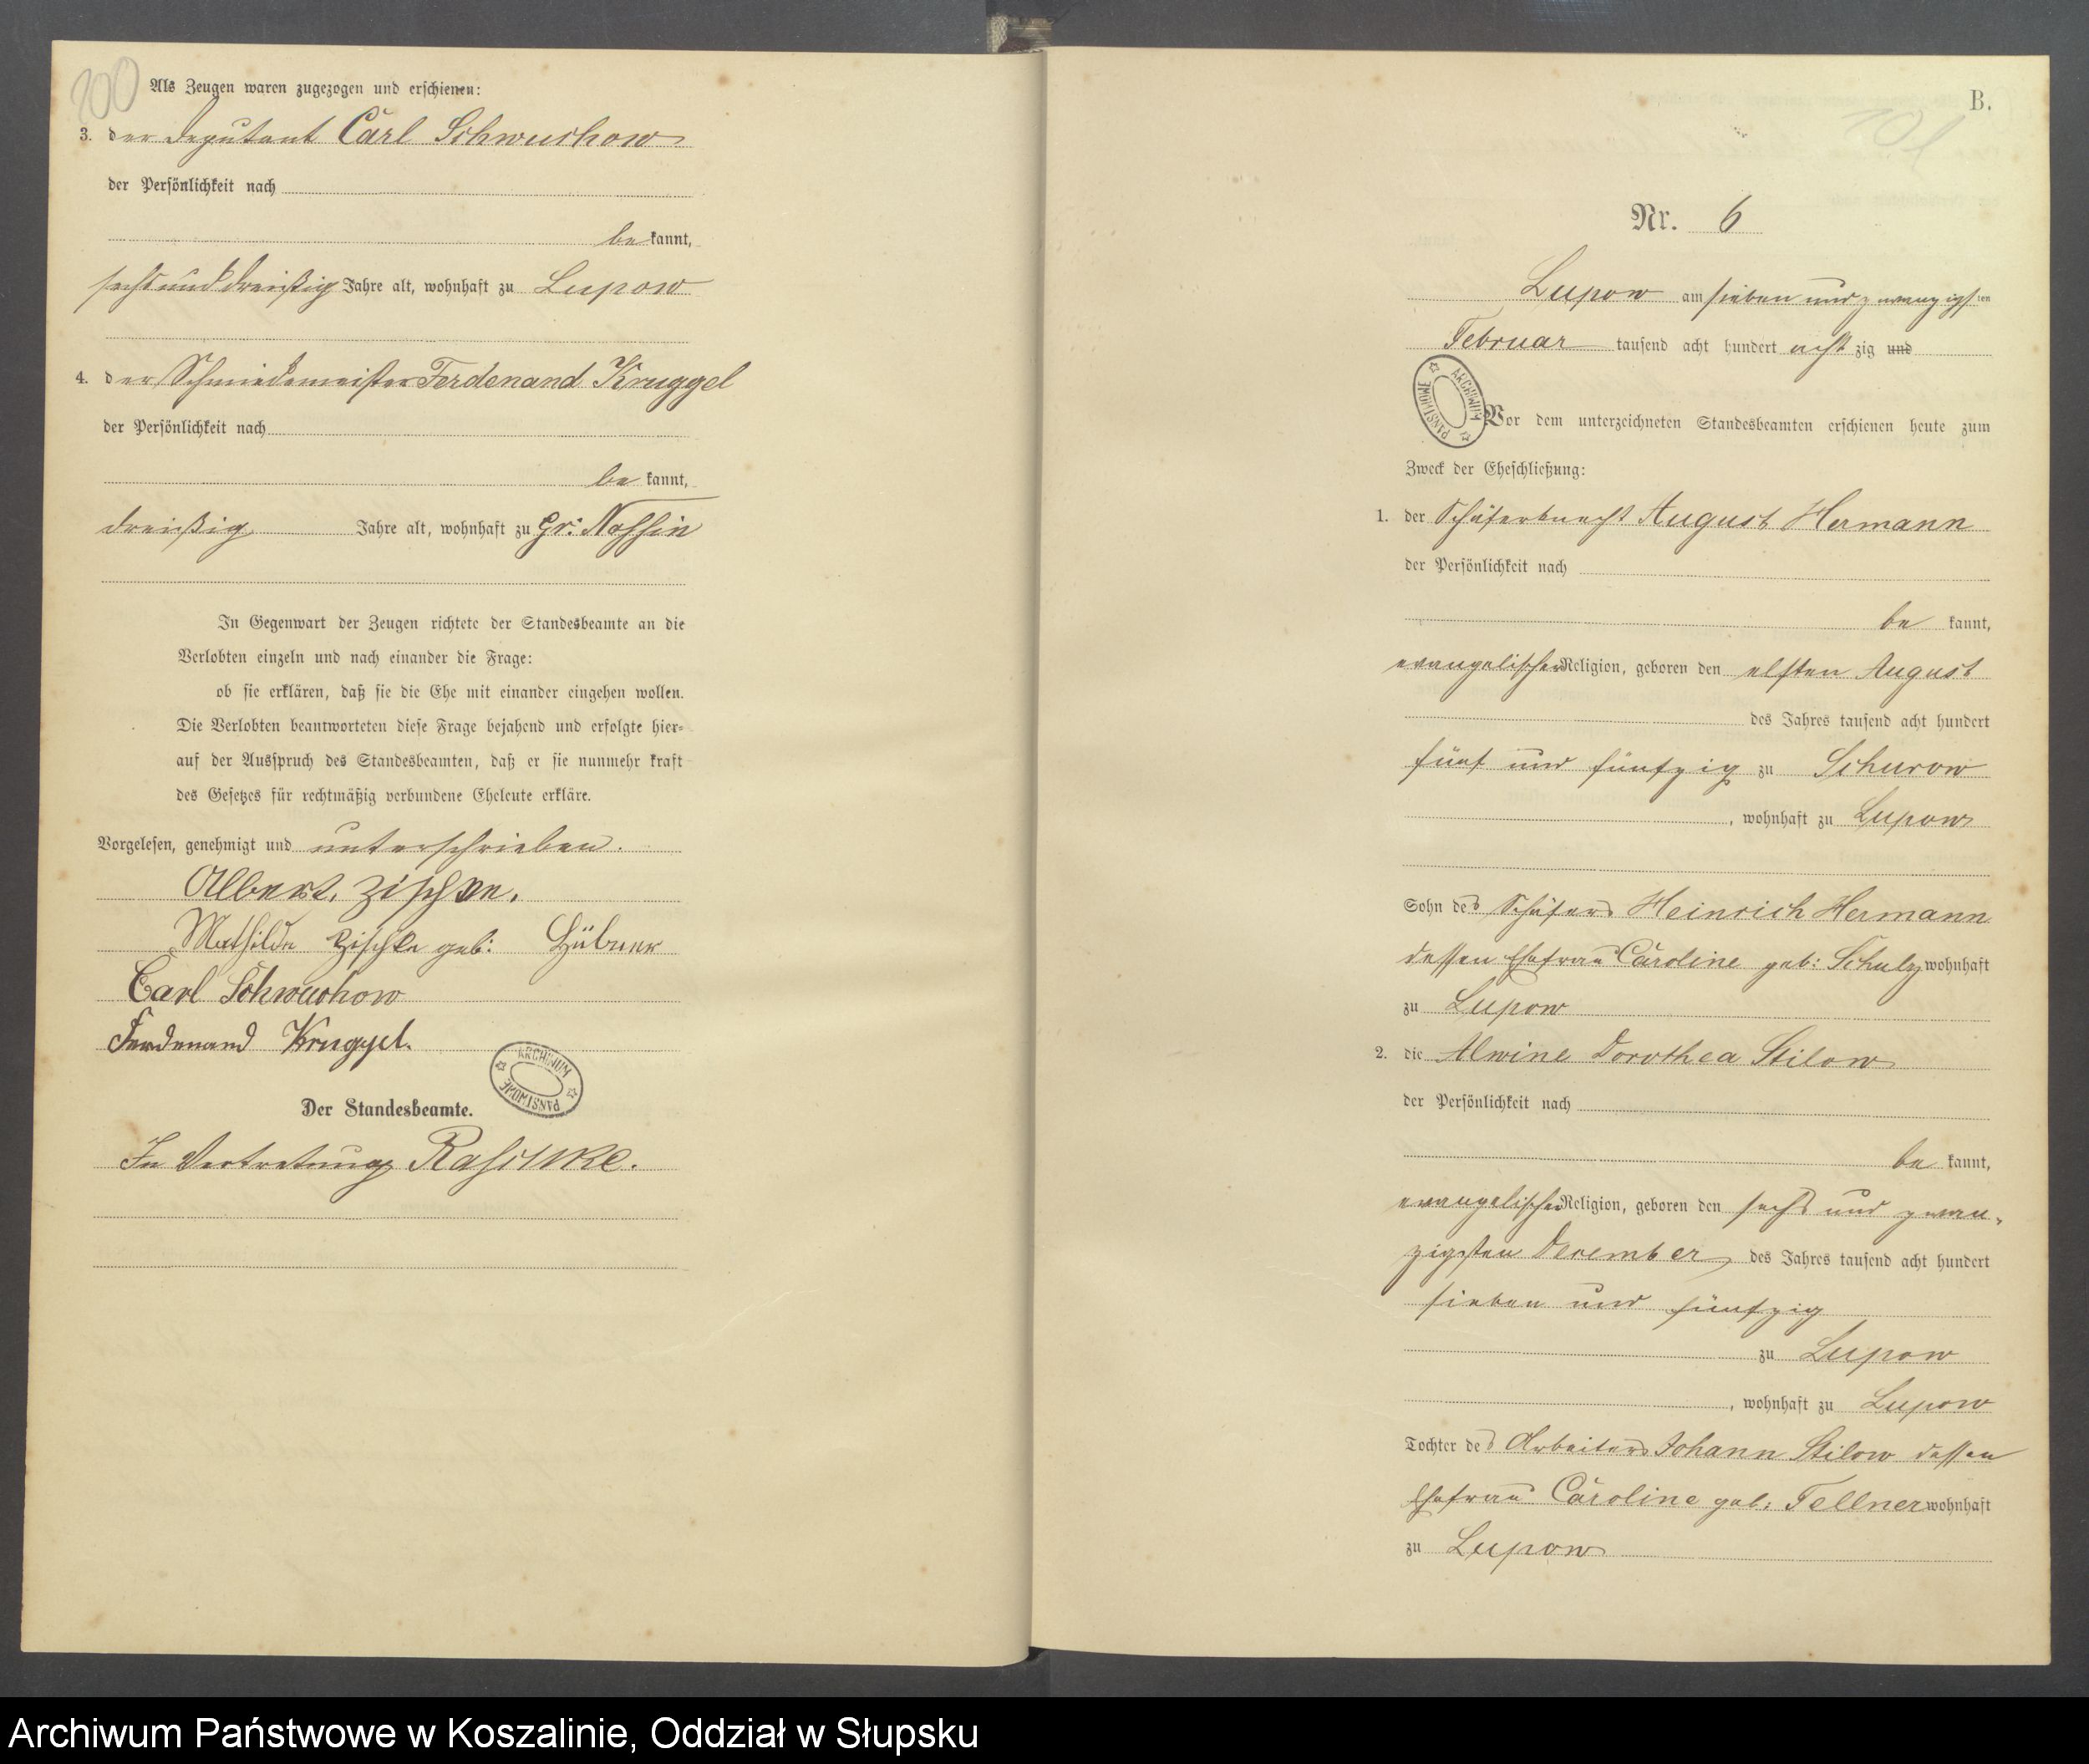 100
Als Zeugen waren zugezogen und erschienen:
3. der Deputant Carl Schwuchow
der Persönlichkeit nach
be kannt,
sechsunddreißig Jahre alt, wohnhaft zu Lupow
4. der Schmiedemeister Ferdenand Kruggel
der Persönlichkeit nach
be kannt,
dreißig Jahre alt, wohnhaft zu Gr: Nossin
In Gegenwart der Zeugen richtete der Standesbeamte an die
Verlobten einzeln und nach einander die Frage:
ob sie erklären, daß sie die Ehe mit einander eingehen wollen.
Die Verlobten beantworteten diese Frage bejahend und erfolgte hier-
auf der Ausspruch des Standesbeamten, daß er sie nunmehr kraft
des Gesetzes für rechtmäßig verbundene Eheleute erkläre.
Vorgelesen, genehmigt und unterschrieben.
Albert Zischke.
Mathilde Zischke geb: Hübner
Carl Schwuchow
Ferdenand Kruggel.
ARCHIWUM PAŃSTWOWE
Der Standesbeamte.
In Vertretung Raschke.
B.
101
Nr. 6
Lupow am sieben und zwanzigsten
Februar tausend acht hundert achtzig und
ARCHIWUM PAŃSTWOWE
Vor dem unterzeichneten Standesbeamten erschienen heute zum
Zweck der Eheschließung:
1. der Schäferknecht August Hermann
der Persönlichkeit nach
be kannt,
evangelischer Religion, geboren den elften August
des Jahres tausend acht hundert
fünf und fünfzig zu Schurow
, wohnhaft zu Lupow
Sohn des Schäfers Heinrich Hermann
dessen Ehefrau Caroline geb: Schulz wohnhaft
zu Lupow
2. die Alwine Dorothea Stilow
der Persönlichkeit nach
be kannt,
evangelischer Religion, geboren den sechs und zwan-
zigsten Dezember des Jahres tausend acht hundert
sieben und fünfzig
zu Lupow
, wohnhaft zu Lupow
Tochter des Arbeiters Johann Stilow dessen
Ehefrau Caroline geb: Fellner wohnhaft
zu Lupow
Archiwum Państwowe w Koszalinie, Oddział w Słupsku